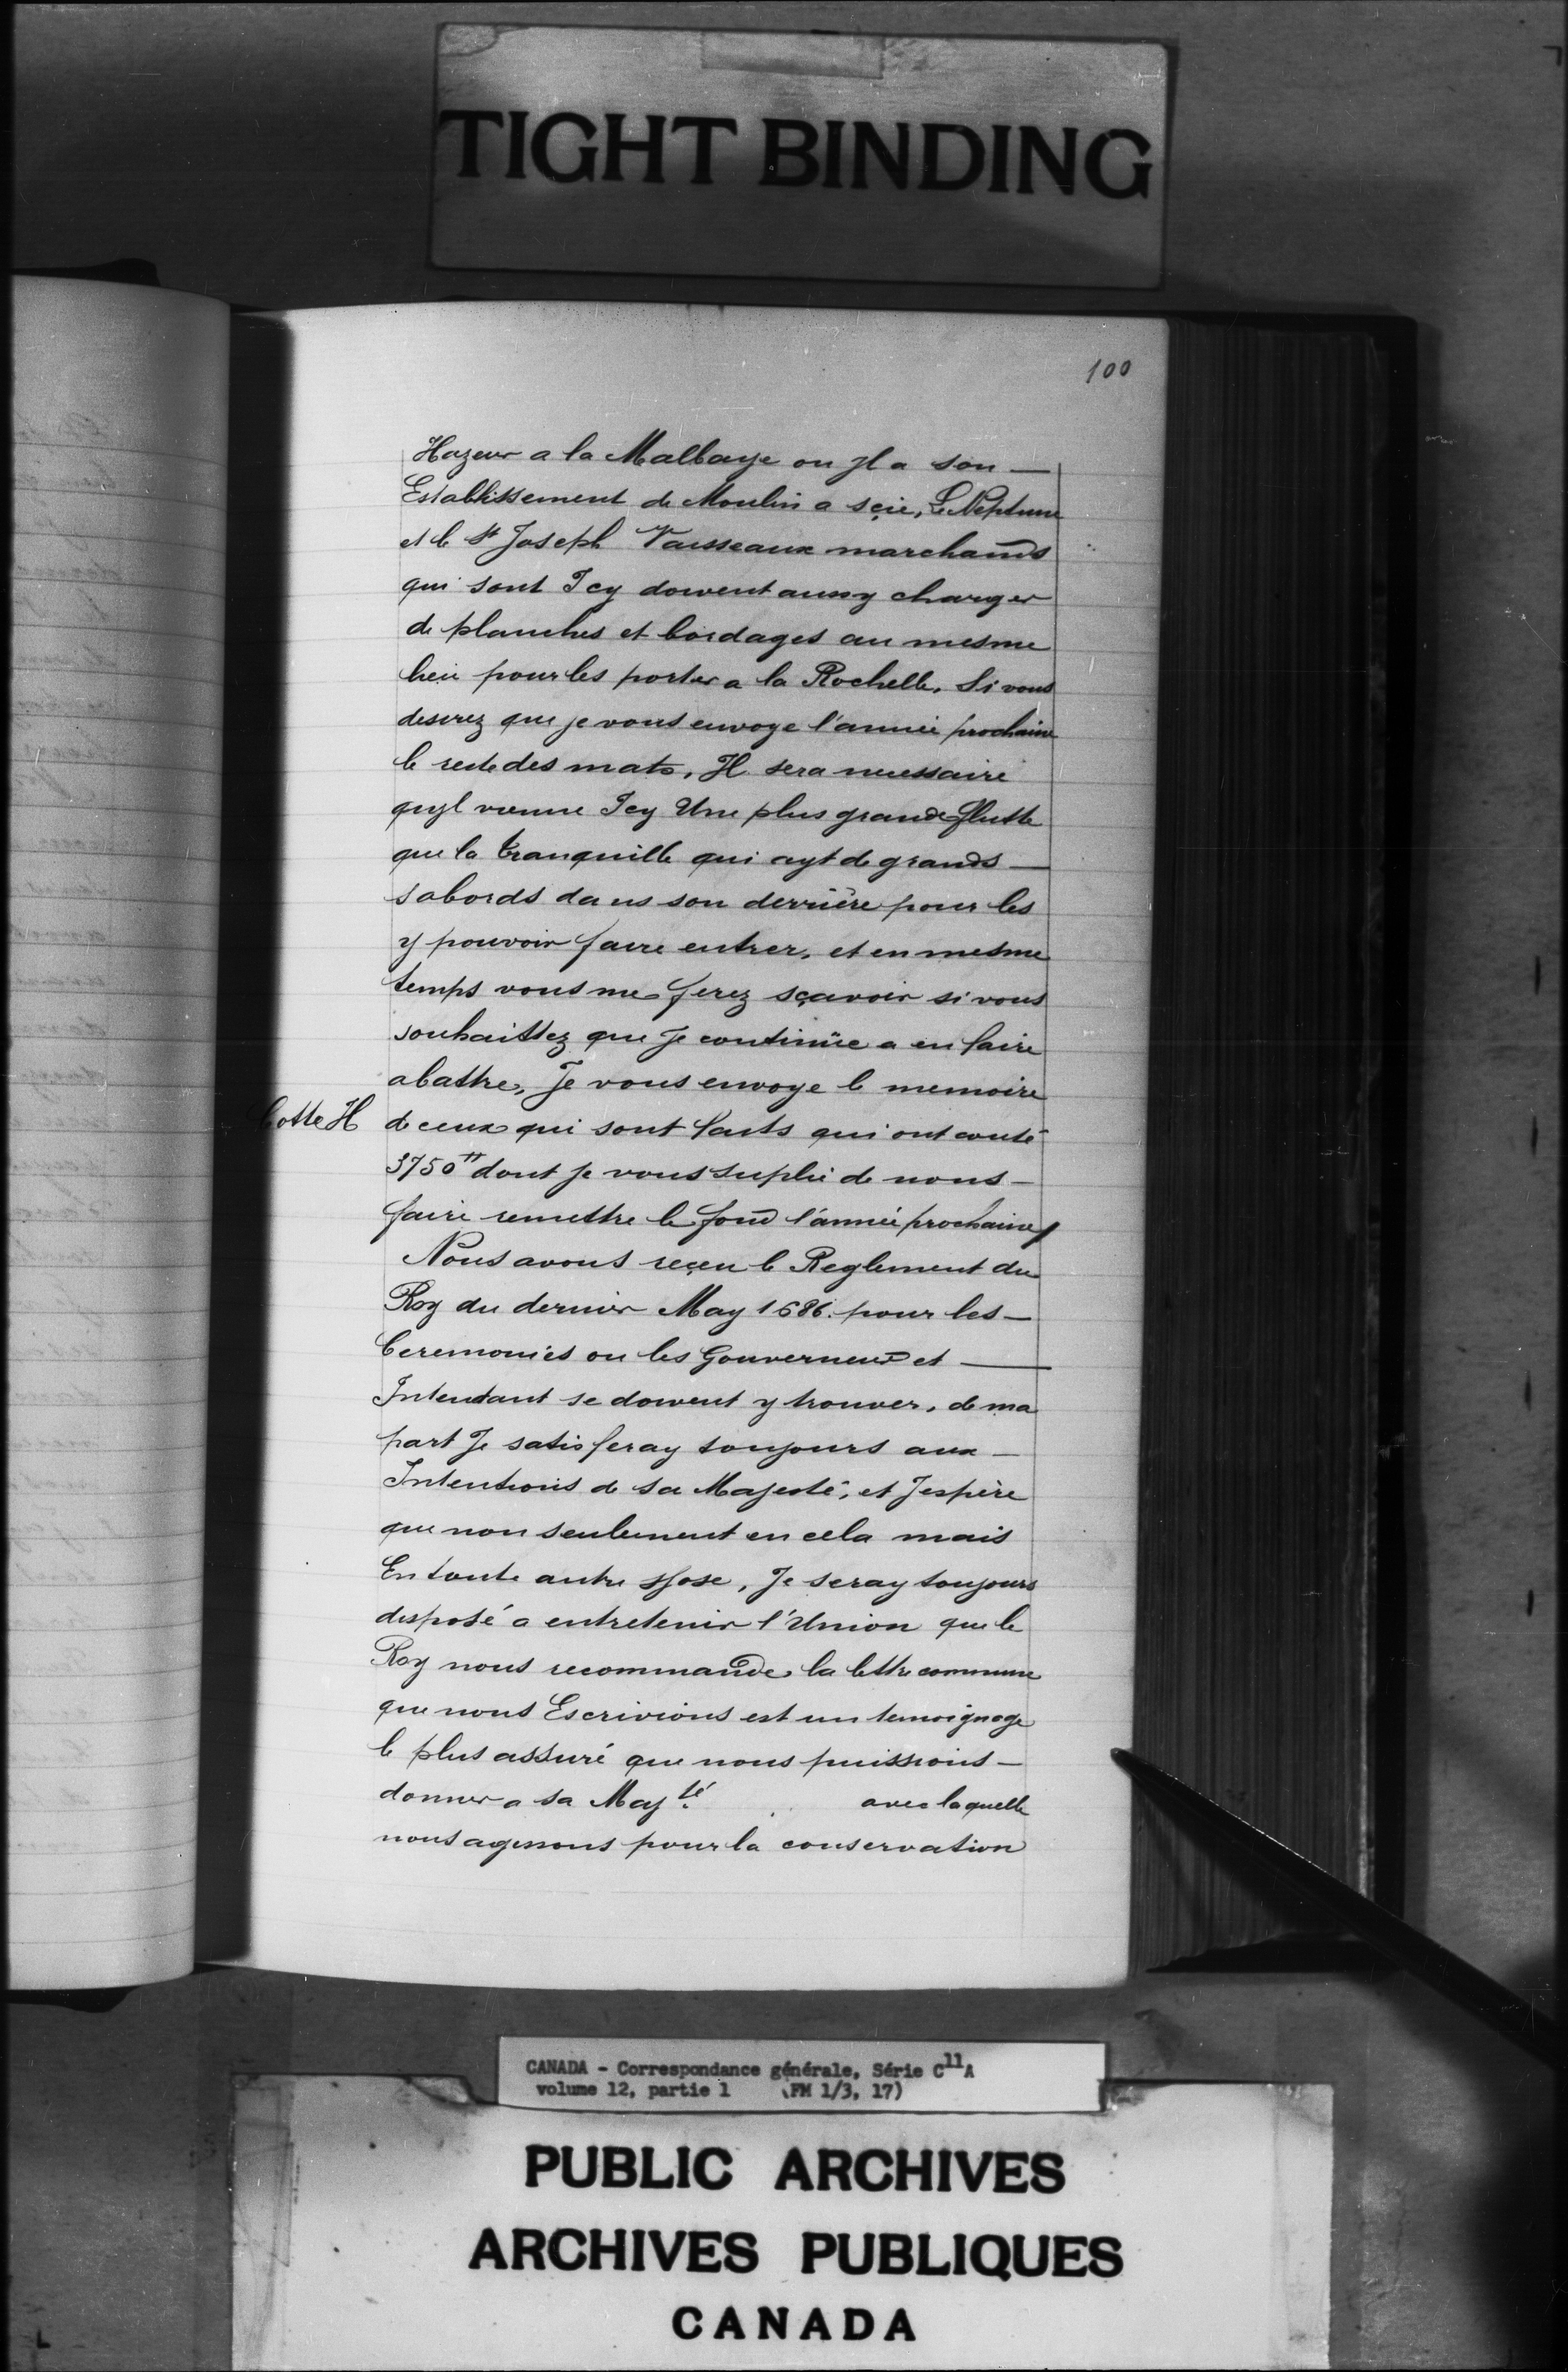 TIGHT BINDING
100
Hazeur a la Malbaye ou Jl a son —
Establissement de Moulin a sçie, Le Neptune
et le St Joseph Vaisseaux marchands
qui sont Icy doivent aussy charger
de planches et bordages au mesme
lieu pour les porter a la Rochelle. Si vous
desirez que je vous envoye l'année prochaine
le reste des mats, Il sera necessaire
quyl vienne Icy Une plus grande flutte
que la tranquille qui ayt de grands —
sabords dans son derrière pour les
y pouvoir faire entrer, et en mesme
temps vous me ferez sçavoir si vous
souhaittez que Je continüe a en faire
abattre, Je vous envoye le memoire
Cotte H
de ceux qui sont faits qui ont couté
3750tt dont je vous suplie de nous —
faire remettre le fond l'année prochaine
Nous avons reçeu le Reglement du
Roy du dernier May 1686. pour les —
Ceremonies ou les Gouverneur et —
Intendant se doivent y trouver, de ma
part Je satisferay toujours aux —
Intentions de sa Majesté, et Jespère
que non seulement en cela mais
En toute autre chose, Je seray toujours
disposé a entretenir l'Union que le
Roy nous recommande la lettre commune
que nous Escrivions est un temoignage
le plus assuré que nous puissions —
donner a sa Majté avec laquelle
nous agissons pour la conservation
CANADA - Correspondance générale, Série C11A
volume 12, partie 1 (FM 1/3, 17)
PUBLIC ARCHIVES
ARCHIVES PUBLIQUES
CANADA